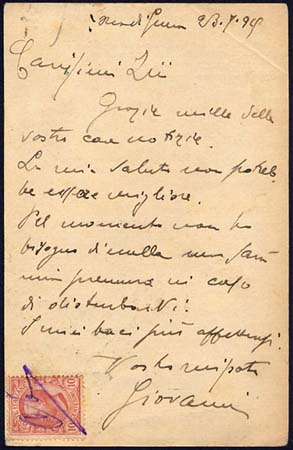 23.X.94
Carissimi Zii
Grazie mille delle
vostre care notizie.
La mia salute non potreb
be essere migliore.
Pel momento non ho
bisogno di nulla ma sarà
mia premura in caso
di disturbarvi.
I miei baci più affettuosi.
Vostro nipote
Giovanni
10 10